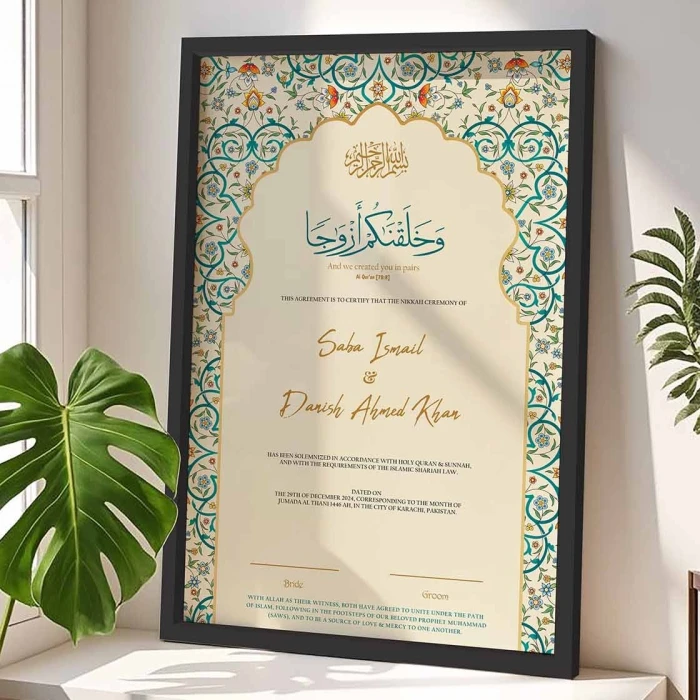 بسم الله الرحمن الرحيم
وَخَلَقْنَٰكُمْ أَزْوَٰجًا
And we created you in pairs
Al-Qur'an [78:8]
THIS AGREEMENT IS TO CERTIFY THAT THE NIKKAH CEREMONY OF
Saba Ismail
&
Danish Ahmed Khan
HAS BEEN SOLEMNIZED IN ACCORDANCE WITH HOLY QURAN & SUNNAH,
AND WITH THE REQUIREMENTS OF THE ISLAMIC SHARIAH LAW.
DATED ON
THE 29TH OF DECEMBER 2024, CORRESPONDING TO THE MONTH OF
JUMADA AL THANI 1446 AH, IN THE CITY OF KARACHI, PAKISTAN.
Bride
Groom
WITH ALLAH AS THEIR WITNESS, BOTH HAVE AGREED TO UNITE UNDER THE PATH
OF ISLAM, FOLLOWING IN THE FOOTSTEPS OF OUR BELOVED PROPHET MUHAMMAD
(SAWS), AND TO BE A SOURCE OF LOVE & MERCY TO ONE ANOTHER.